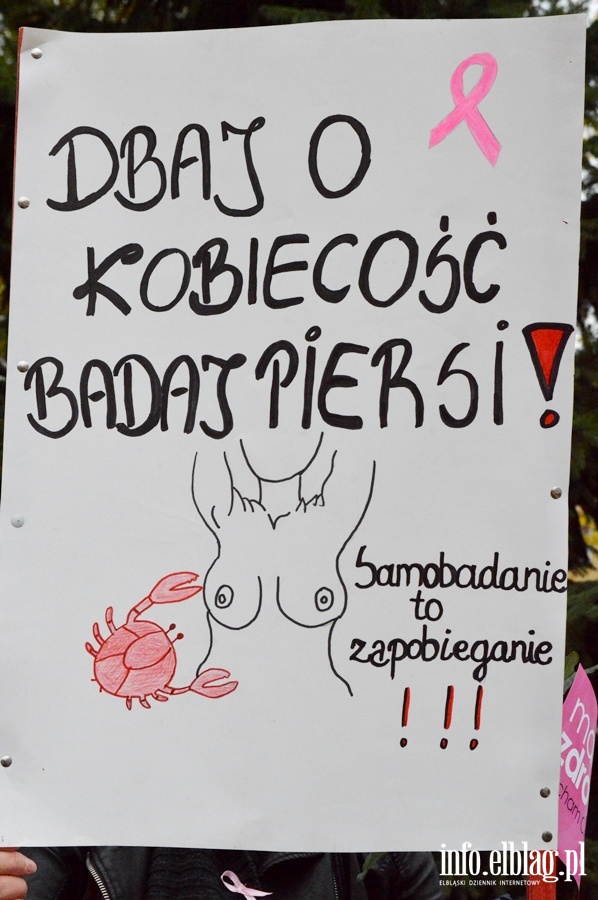 DBAJ O
KOBIECOŚĆ
BADAJ PIERSI!
Samobadanie
to
zapobieganie
!!!
zdro
info.elblag.pl
ELBLĄSKI DZIENNIK INTERNETOWY